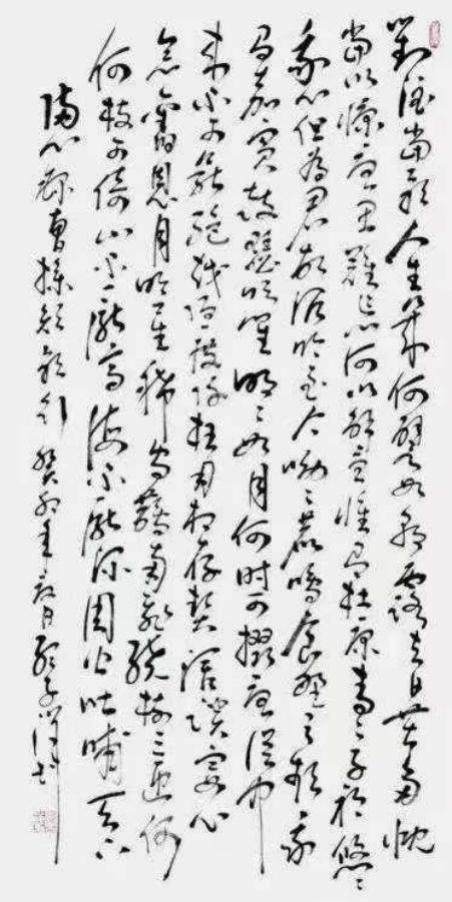 對酒當歌人生幾何譬如朝露去日苦多慨
當以慷憂思難忘何以解憂惟有杜康青々子衿悠々
我心但為君故沉吟至今呦々鹿鳴食野之苹我
有嘉賓鼓瑟吹笙明々如月何时可掇憂從中
来不可斷絕越陌度阡枉用相存契闊談讌心
念舊恩月明星稀烏鵲南飛繞樹三匝何
何枝可依山不厭高海不厭深周公吐哺天下
歸心 錄曹操短歌行 癸卯年